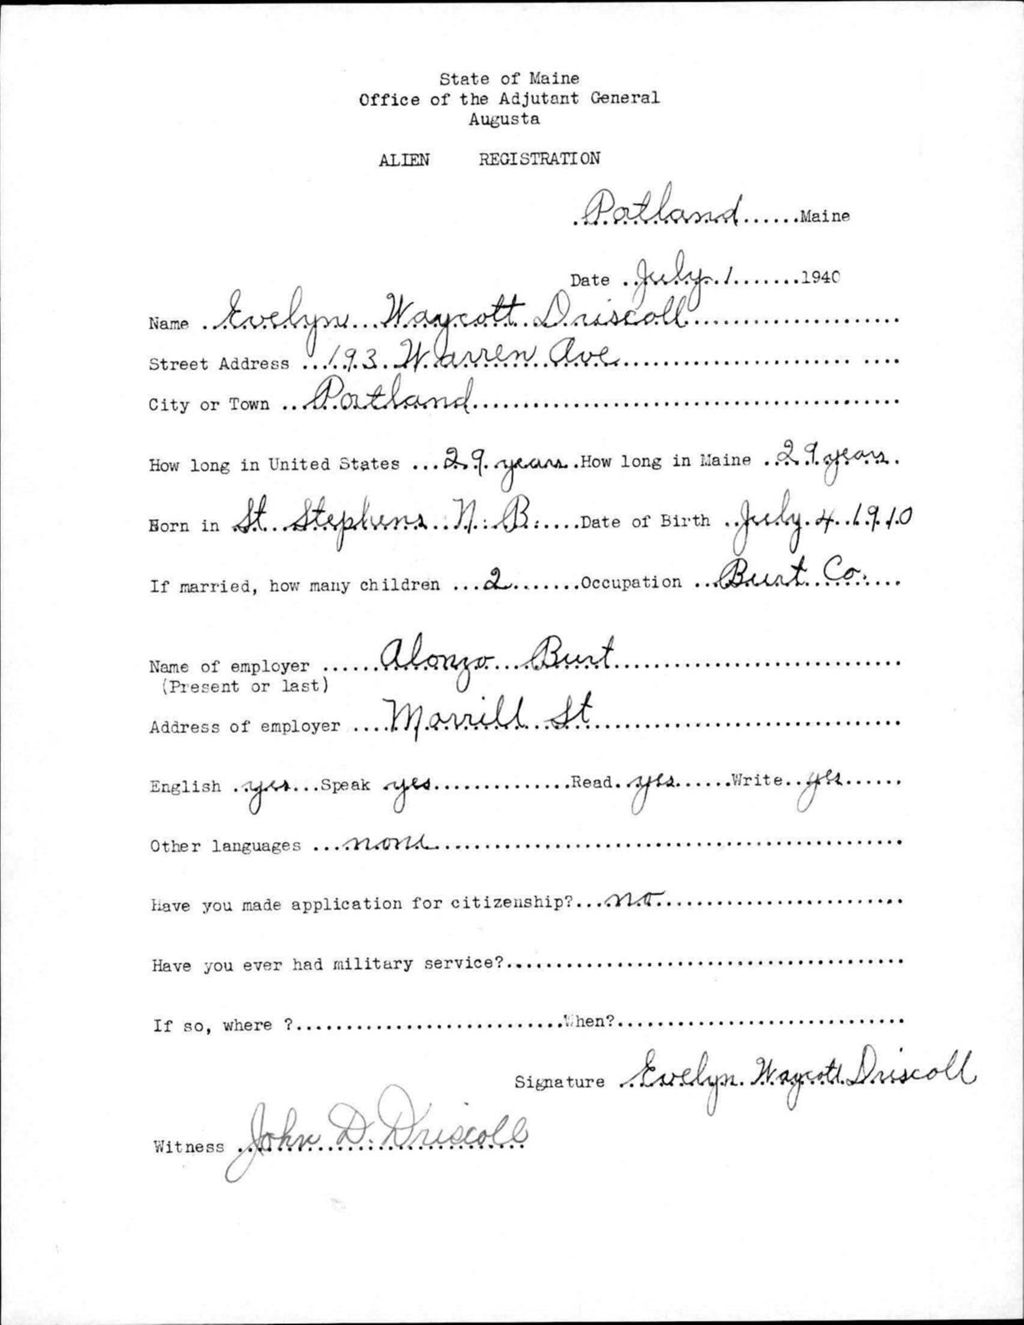 State of Maine
Office of the Adjutant General
Augusta
ALIEN REGISTRATION
Portland Maine
Date July 1 1940
Name Evelyn Waycott Driscoll
Street Address 193 Warren Ave
City or Town Portland
How long in United States 29 years How long in Maine 29 years
Born in St Stephens N. B. Date of Birth July 4 1910
If married, how many children 2 Occupation Burt Co.
Name of employer Alonzo Burt
(Present or last)
Address of employer Morrill St
English yes Speak yes Read yes Write yes
Other languages none
Have you made application for citizenship? no
Have you ever had military service?
If so, where ? When?
Signature Evelyn Waycott Driscoll
Witness John D. Driscoll